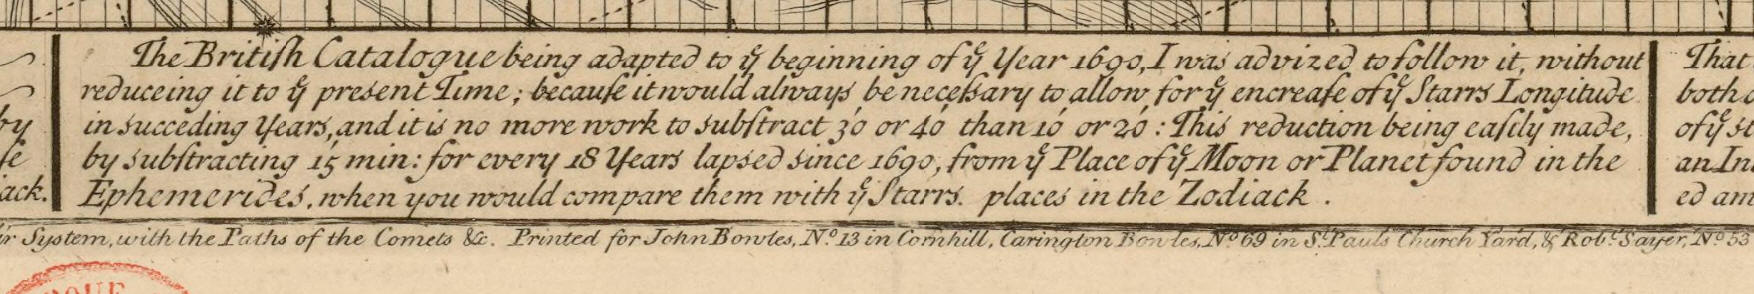 The British Catalogue being adapted to yͤ beginning of yͤ Year 1690, I was advized to follow it, without
reduceing it to yͤ present Time; becauſe it would always be neceſsary to allow for yͤ encreaſe of yͤ Starrs Longitude
in succeding Years, and it is no more work to subſtract 30' or 40' than 10' or 20': This reduction being eaſily made,
by subſtracting 15 min: for every 18 Years lapsed since 1690, from yͤ Place of yͤ Moon or Planet found in the
Ephemerides, when you would compare them with yͤ Starrs. places in the Zodiack.
by
ſe
iack.
That
both
of yͤ
an In
ed am
System, with the Paths of the Comets &c. Printed for John Bowles, Nº 13 in Cornhill, Carington Bowles, Nº 69 in Sᵗ Pauls Church Yard, & Robᵗ Sayer, Nº 53